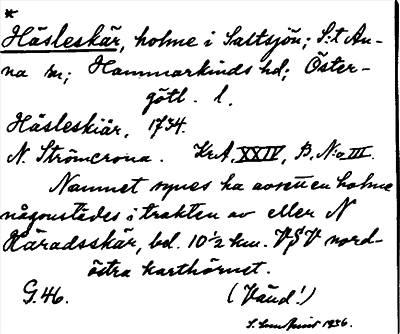 *
Häsleskär, holme i Saltsjön; S:t An-
na sn; Hammarkinds hd; Öster-
götl. l.
Häsleskiär, 1734.
N. Strömcrona. Kr.A. XXIV, B. N:o III.
Namnet synes ha avsett en holme
någonstädes i trakten av eller N
Häradsskär, bel. 10½ km. VSV nord-
östra karthörnet.
G. 46. (Vänd!)
1936.